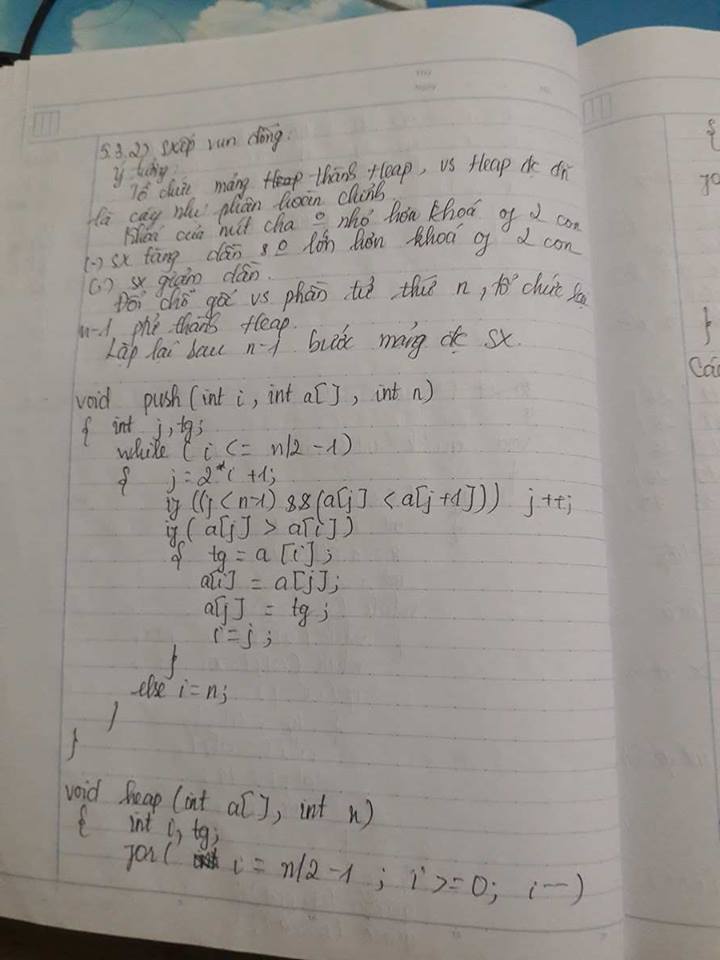 5.3.2) Sxếp vun đống:
Ý tưởng:
Tổ chức mảng thành Heap, vs Heap đc đn
là cây nhị phân hoàn chỉnh
Khoá của nút cha o nhỏ hơn khoá of 2 con
(-) sx tăng dần & o lớn hơn khoá of 2 con
(-) sx giảm dần.
Đổi chỗ gốc vs phần tử thứ n, tổ chức lại
n-1 ptử thành Heap.
Lặp lại sau n-1 bước mảng đc SX.
void push (int i, int a[], int n)
{ int j, tg;
while (i <= n/2 -1)
{ j = 2*i +1;
if ((j < n-1) && (a[j] < a[j+1])) j++;
if (a[j] > a[i])
{ tg = a [i];
a[i] = a[j];
a[j] = tg;
i = j;
}
else i = n;
}
}
void heap (int a[], int n)
{ int i, tg;
for ( i = n/2 -1 ; i >= 0; i--)
{
}
Các